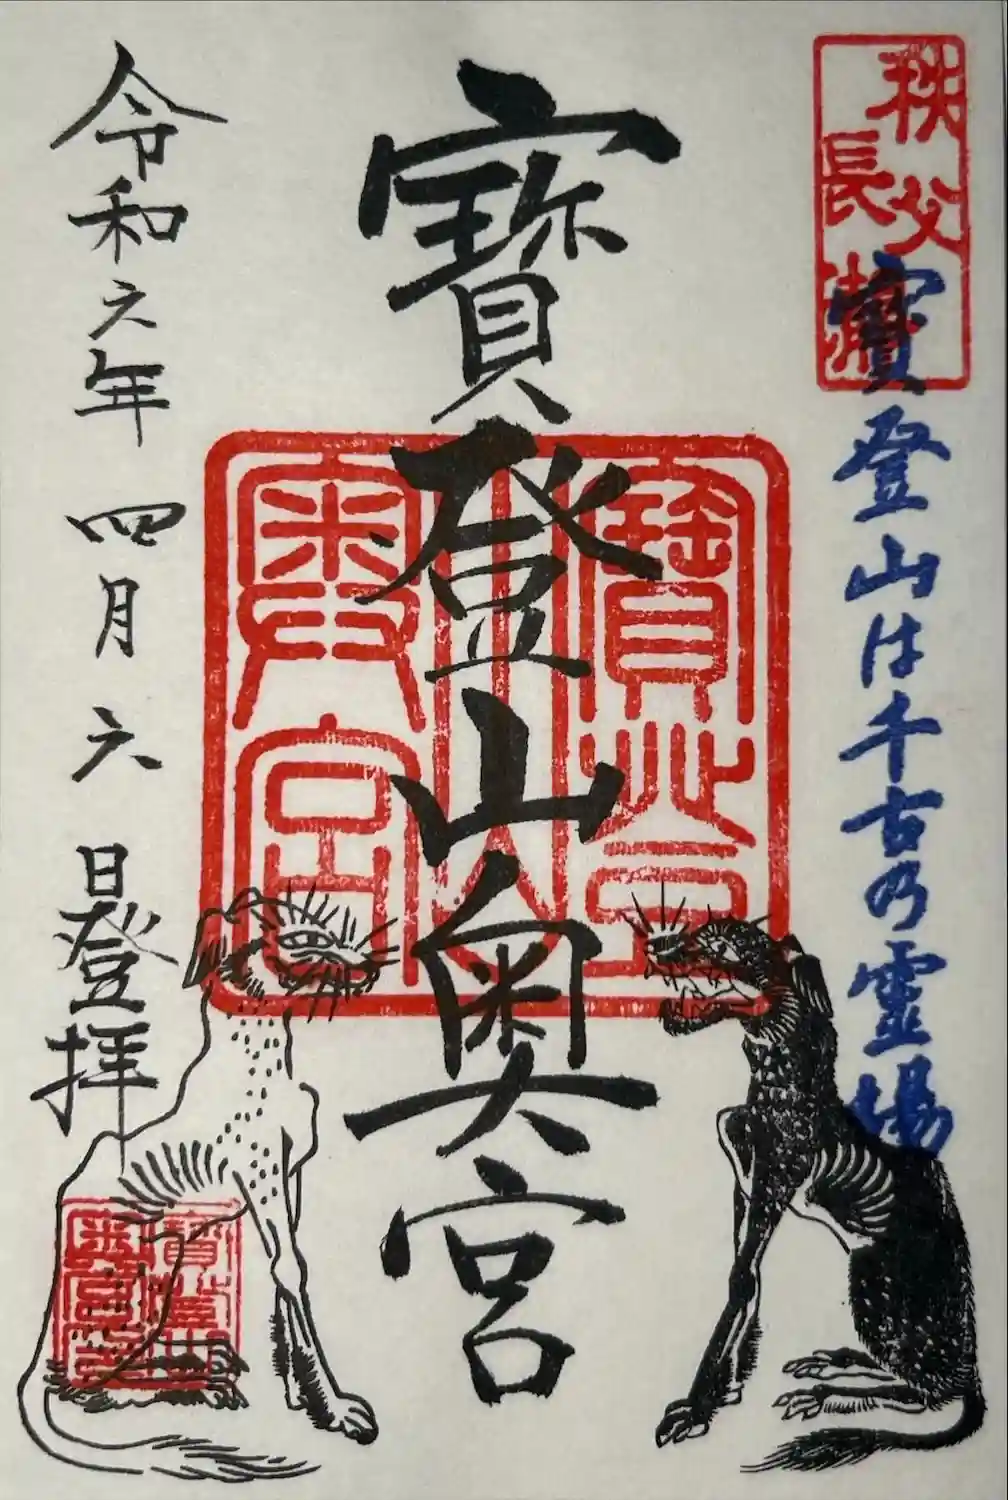 秩父
長瀞
寶登山は千古乃霊場
寶登山奥宮
寶登山
奥宮
令和六年 四月六日登拝